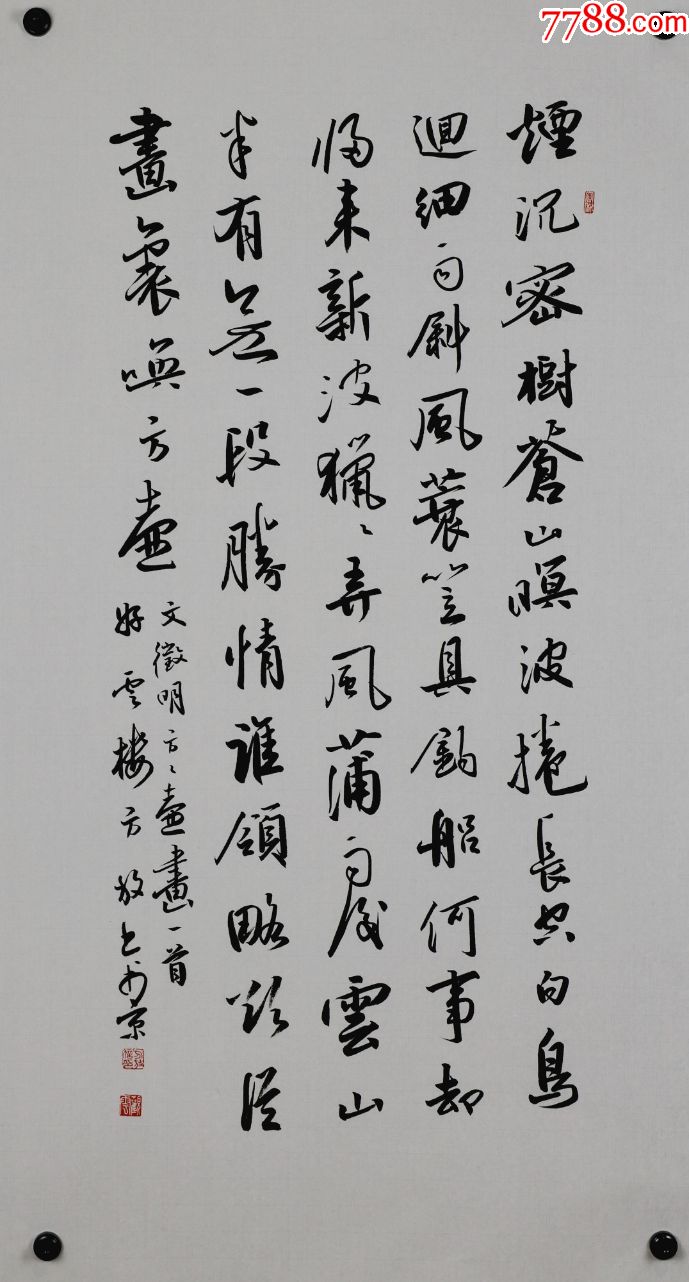 7788.com
煙沉密樹蒼山暝波捲長空白鳥
迴細雨斜風蓑笠具釣船何事却
歸来新波獵〻弄風蒲雨後雲山
半有無一段勝情誰領略欲從
畫裏喚方壺
文徵明方〻壺畫一首
好雲樓方放書於京